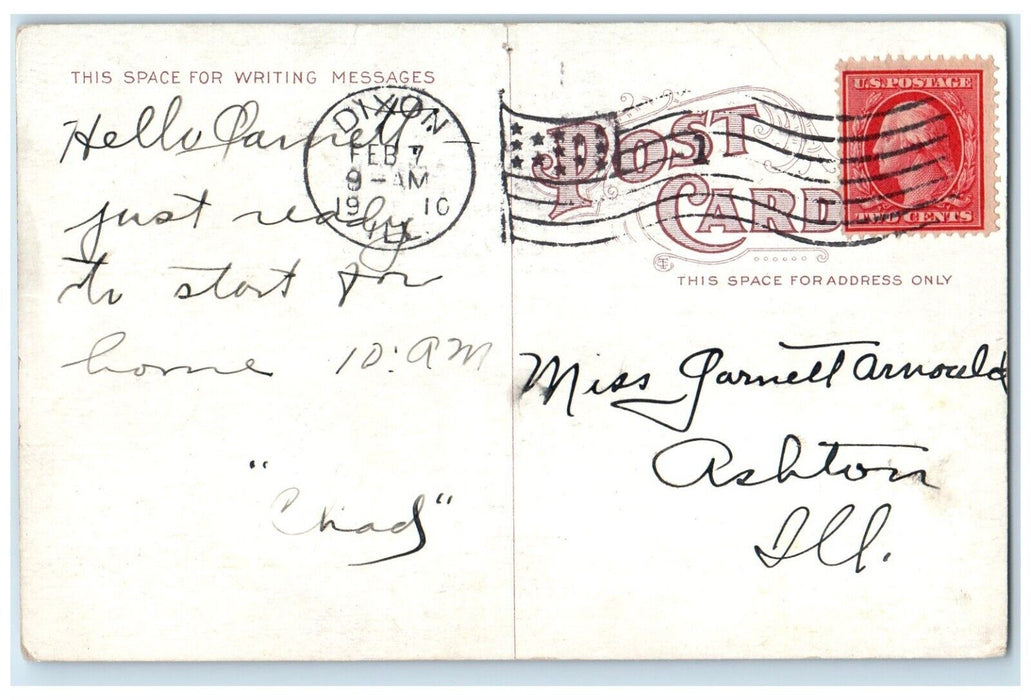 THIS SPACE FOR WRITING MESSAGES
Hello Garnett –
just ready
to start for
home 10: AM
"Chad"
DIXON
FEB 7
9-AM
19 10
ILL.
1
POST
CARD
U.S. POSTAGE
TWO CENTS
THIS SPACE FOR ADDRESS ONLY
Miss Garnett Arnould
Ashton
Ill.